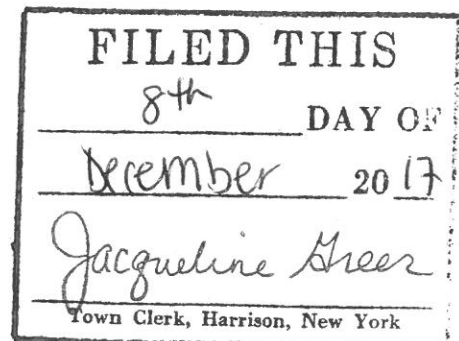 FILED THIS
8th
DAY OF
December 20 17
Jacqueline Greer
Town Clerk, Harrison, New York